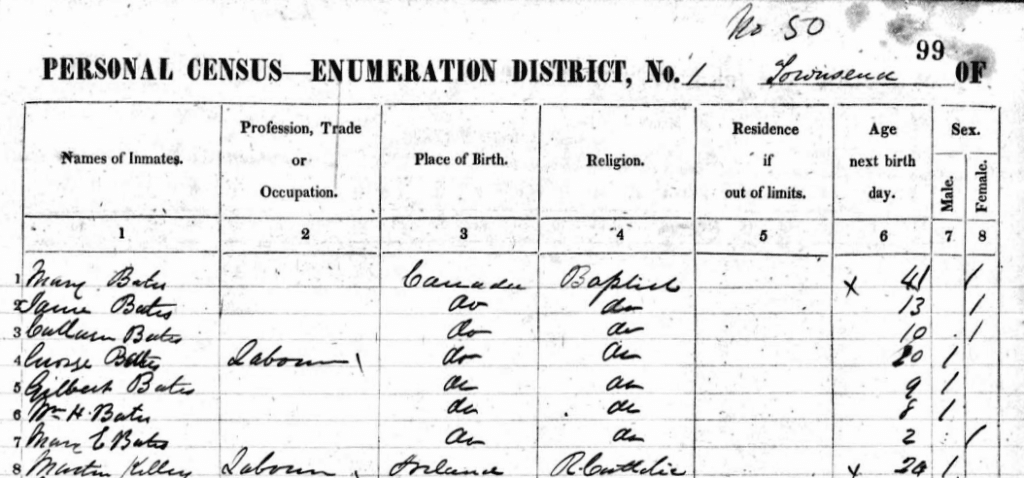 No 50
99
PERSONAL CENSUS—ENUMERATION DISTRICT, No. 1 Townsend OF
Names of Inmates. Profession, Trade or Occupation. Place of Birth. Religion. Residence if out of limits. Age next birth day. Sex. Male. Female.
1 2 3 4 5 6 7 8
1 Mary Bates Canada Baptist x 41 /
2 Jane Bates do do 13 /
3 Bates do do 10 /
4 George Bates Labourer \ do do 20 /
5 Gilbert Bates do do 9 /
6 Wm H. Bates do do 8 /
7 Mary E Bates do do 2 /
8 Martin Labourer Ireland R. Catholic x /